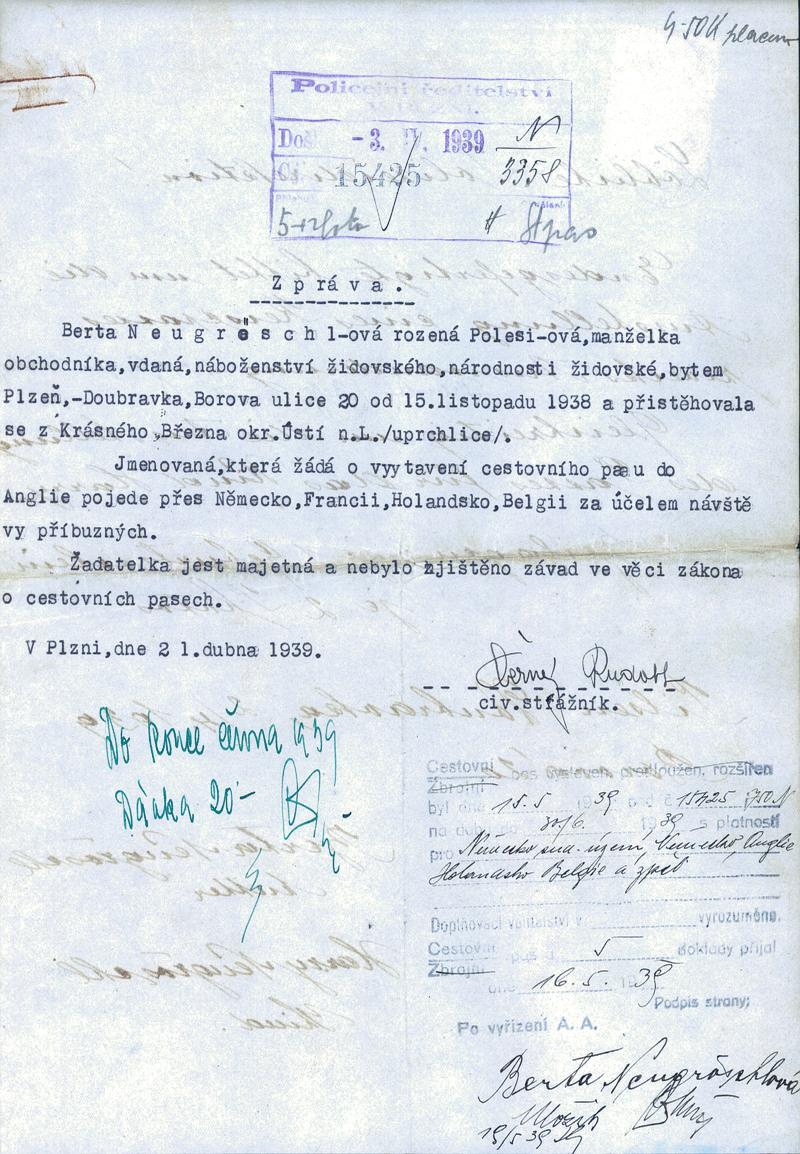 4·50K
Policejní ředitelství
Doš -3. IV. 1939 N
Čj. 15425 3358
Zpráva.
Berta Neugröschl-ová rozená Polesi-ová,manželka
obchodníka,vdaná,náboženství židovského,národnosti židovské,bytem
Plzeň,-Doubravka,Borova ulice 20 od 15.listopadu 1938 a přistěhovala
se z Krásného Března okr.Ústí n.L./uprchlice/.
Jmenovaná,která žádá o vytavení cestovního pasu do
Anglie pojede přes Německo,Francii,Holandsko,Belgii za účelem návště
vy příbuzných.
Žadatelka jest majetná a nebylo zjištěno závad ve věci zákona
o cestovních pasech.
V Plzni,dne 2 1.dubna 1939.
Černý Rudolf
civ.strážník.
Do konce června 1939
Dávka 20-
Cestovní
Zbrojní
pas vystaven, prodloužen, rozšířen
byl dne 15.5 1939 pod č 15425
na dobu do 30/6. 1939 s platností
pro Německo, Anglie
Holandsko Belgie a zpět
Doplňovací velitelství v vyrozuměno.
Cestovní
Zbrojní
pas a 5 doklady přijal
dne 16.5. 1939
Podpis strany;
Po vyřízení A. A.
Berta Neugröschlová
19/5 39